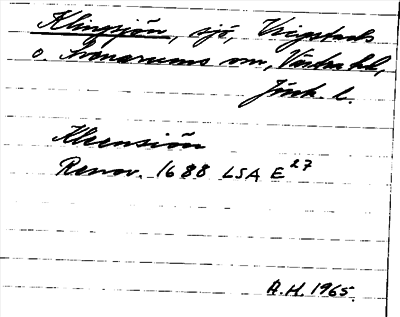 Klingsjön, sjö, Vrigstads
o. Svenarums sn, Västra hd,
Jönk. l.
Klernsiön
Renov. 1688 LSA E27
A.H. 1965.